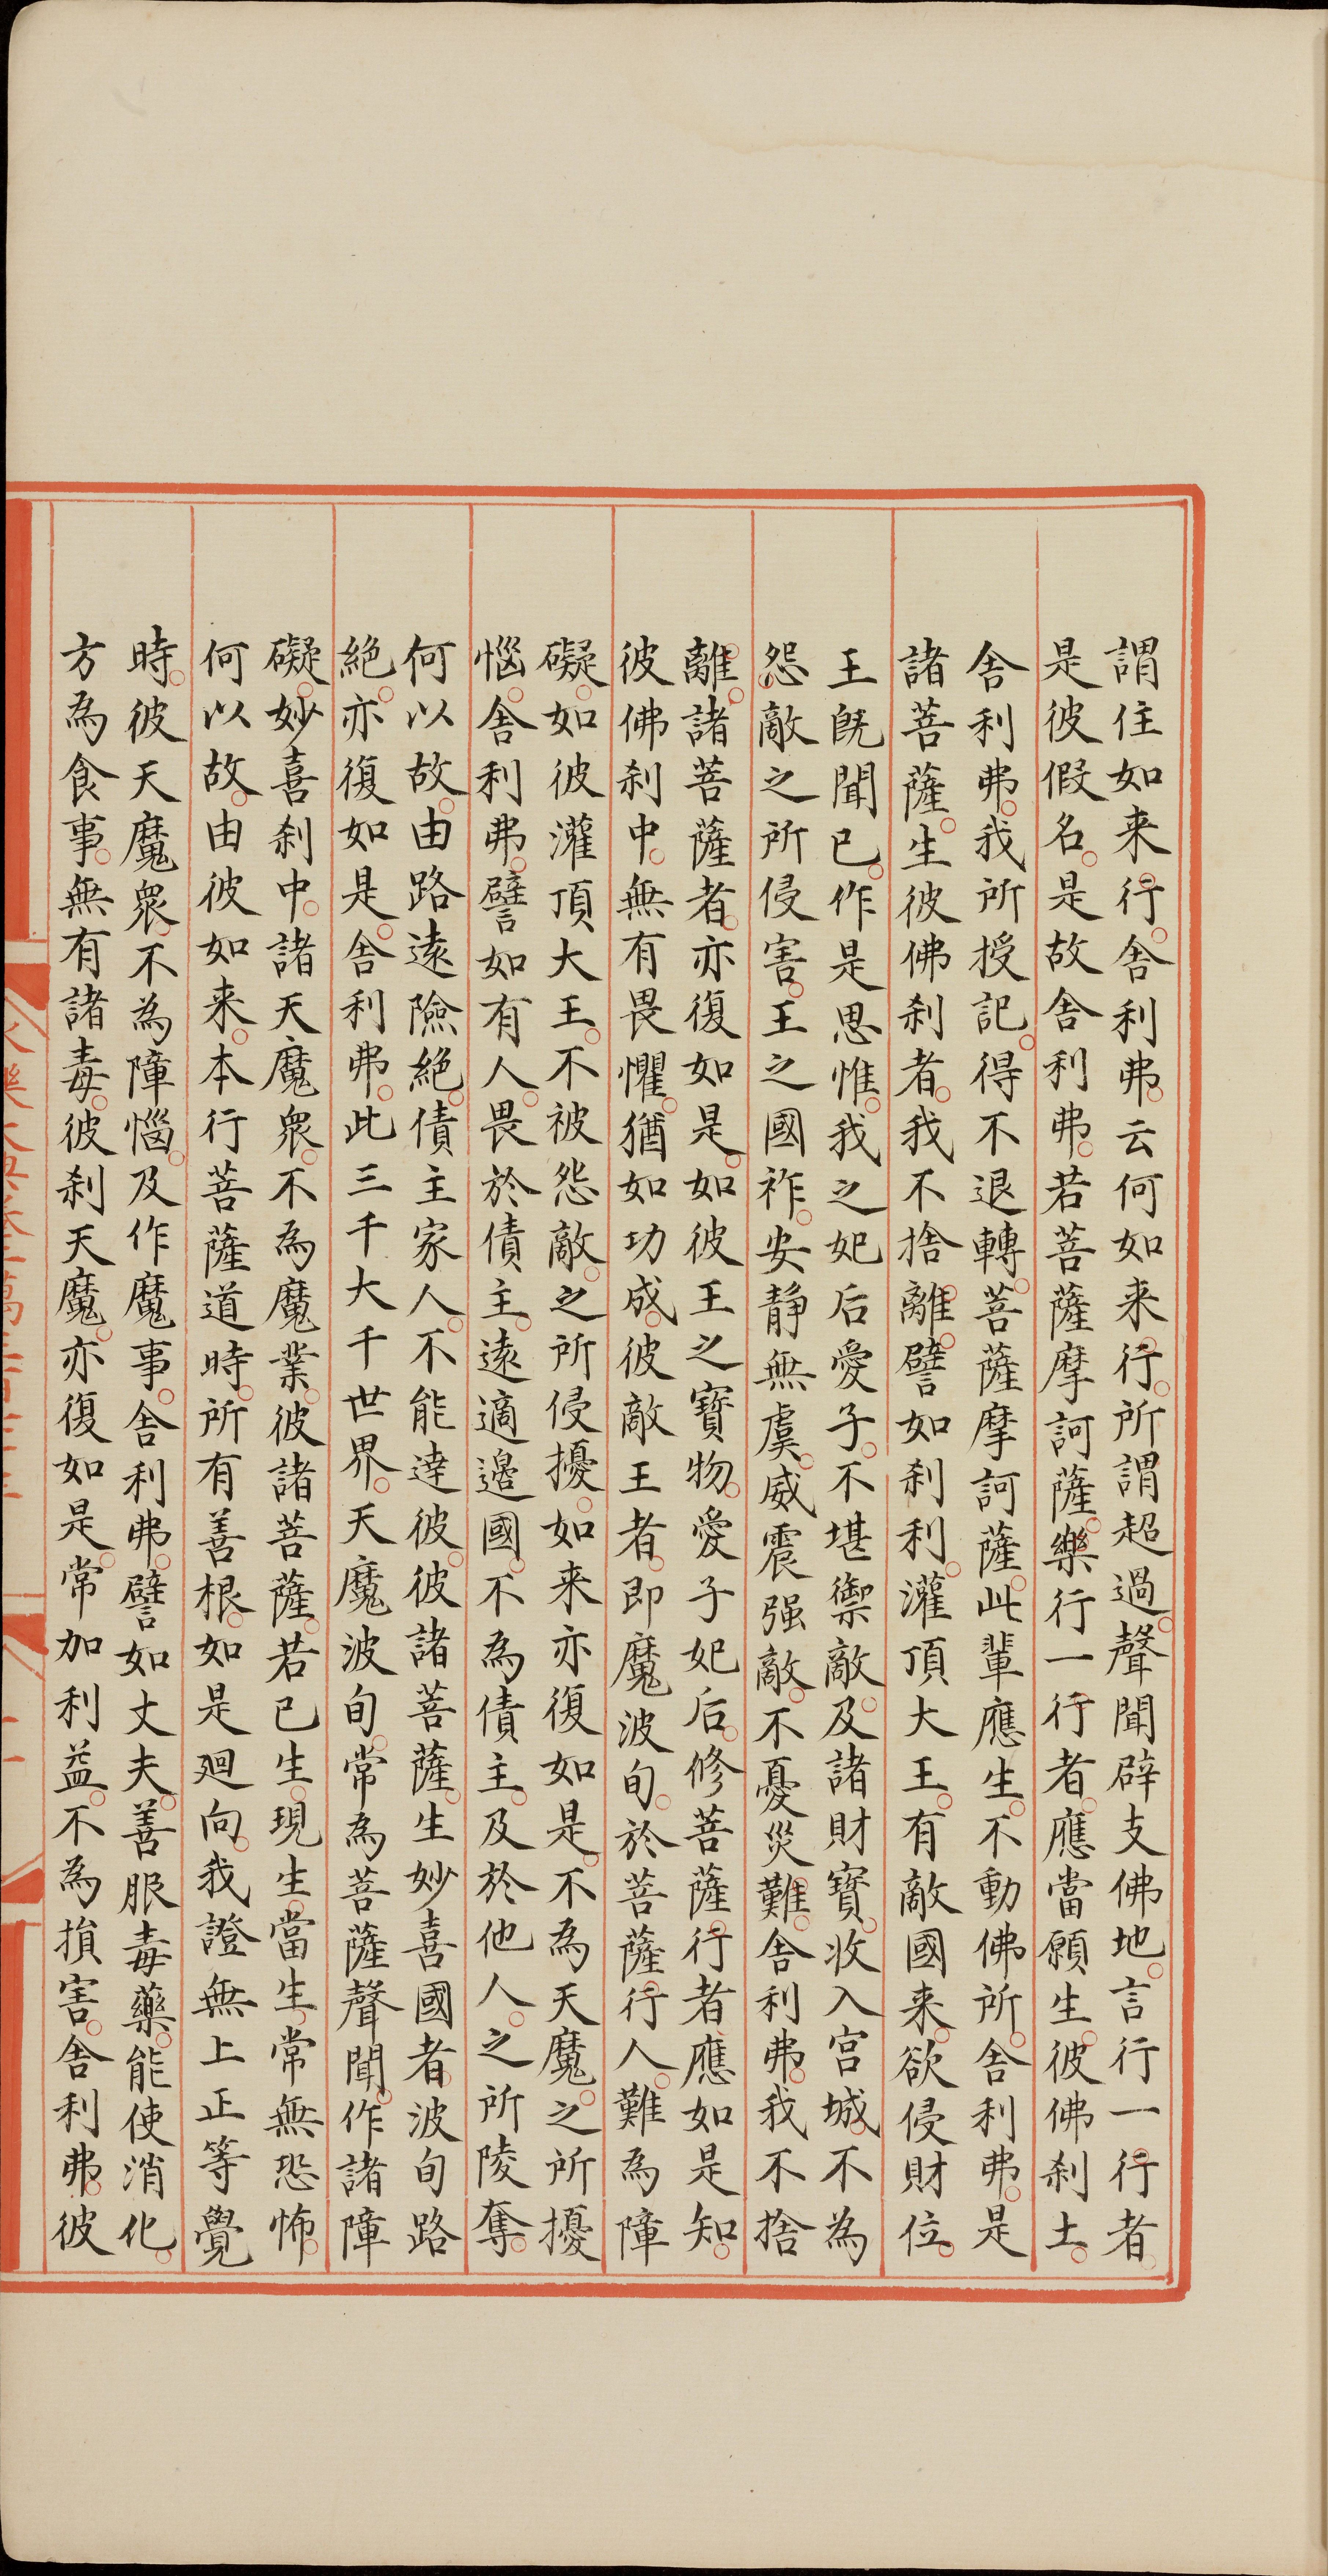 謂住如来行舎利弗云何如来行所謂超過聲聞辟支佛地言行一行者
是彼假名是故舎利弗若菩薩摩訶薩樂行一行者應當願生彼佛刹土
舎利弗我所授記得不退轉菩薩摩訶薩此輩應生不動佛所舎利弗是
諸菩薩生彼佛刹者我不捨離譬如刹利灌頂大王有敵國来欲侵財位
王旣聞已作是思惟我之妃后愛子不堪禦敵及諸財寶收入宫城不為
怨敵之所侵害王之國祚安靜無虞威震强敵不憂災難舎利弗我不捨
離諸菩薩者亦復如是如彼王之寶物愛子妃后修菩薩行者應如是知
彼佛刹中無有畏懼猶如功成彼敵王者即魔波旬於菩薩行人難為障
礙如彼灌頂大王不被怨敵之所侵擾如来亦復如是不為天魔之所擾
惱舎利弗譬如有人畏於債主逺適邊國不為債主及於他人之所陵奪
何以故由路逺險絶債主家人不能逹彼彼諸菩薩生妙喜國者波旬路
絶亦復如是舎利弗此三千大千世界天魔波旬常為菩薩聲聞作諸障
礙妙喜刹中諸天魔衆不為魔業彼諸菩薩若已生現生當生常無恐怖
何以故由彼如来本行菩薩道時所有善根如是廻向我證無上正等覺
時彼天魔衆不為障惱及作魔事舎利弗譬如丈夫善服毒藥能使消化
方為食事無有諸毒彼刹天魔亦復如是常加利益不為損害舎利弗彼